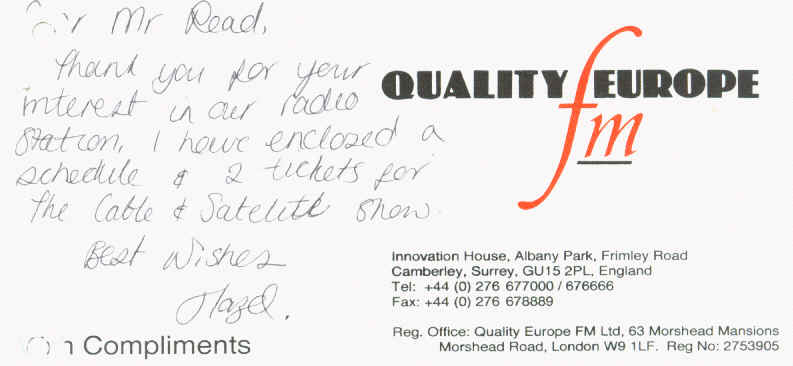 Mr Read,
Thank you for your
interest in our radio
station, I have enclosed a
schedule & 2 tickets for
the Cable & Satelite Show.
Best Wishes
Hazel.
Compliments
QUALITY EUROPE
fm
Innovation House, Albany Park, Frimley Road
Camberley, Surrey, GU15 2PL, England
Tel: +44 (0) 276 677000 / 676666
Fax: +44 (0) 276 678889
Reg. Office: Quality Europe FM Ltd, 63 Morshead Mansions
Morshead Road, London W9 1LF. Reg No: 2753905